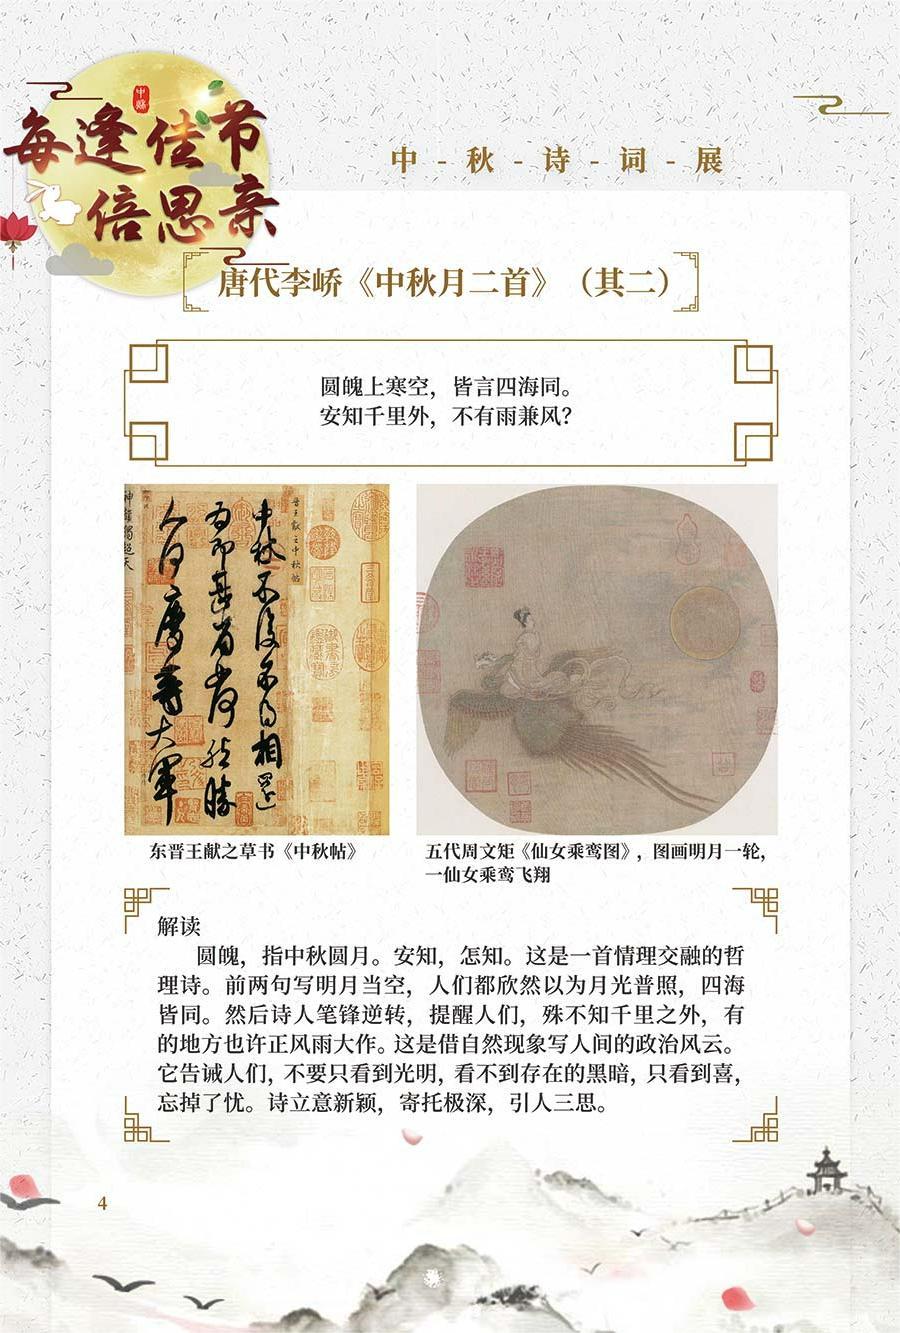 每逢佳节
倍思亲
中秋
中-秋-诗-词-展
唐代李峤《中秋月二首》（其二）
圆魄上寒空，皆言四海同。
安知千里外，不有雨兼风？
晋王献之中秋帖
中秋不复不得相还
为即甚省如何然胜
人何庆等大军
东晋王献之草书《中秋帖》
五代周文矩《仙女乘鸾图》，图画明月一轮，
一仙女乘鸾飞翔
解读
圆魄，指中秋圆月。安知，怎知。这是一首情理交融的哲
理诗。前两句写明月当空，人们都欣然以为月光普照，四海
皆同。然后诗人笔锋逆转，提醒人们，殊不知千里之外，有
的地方也许正风雨大作。这是借自然现象写人间的政治风云。
它告诫人们，不要只看到光明，看不到存在的黑暗，只看到喜，
忘掉了忧。诗立意新颖，寄托极深，引人三思。
4